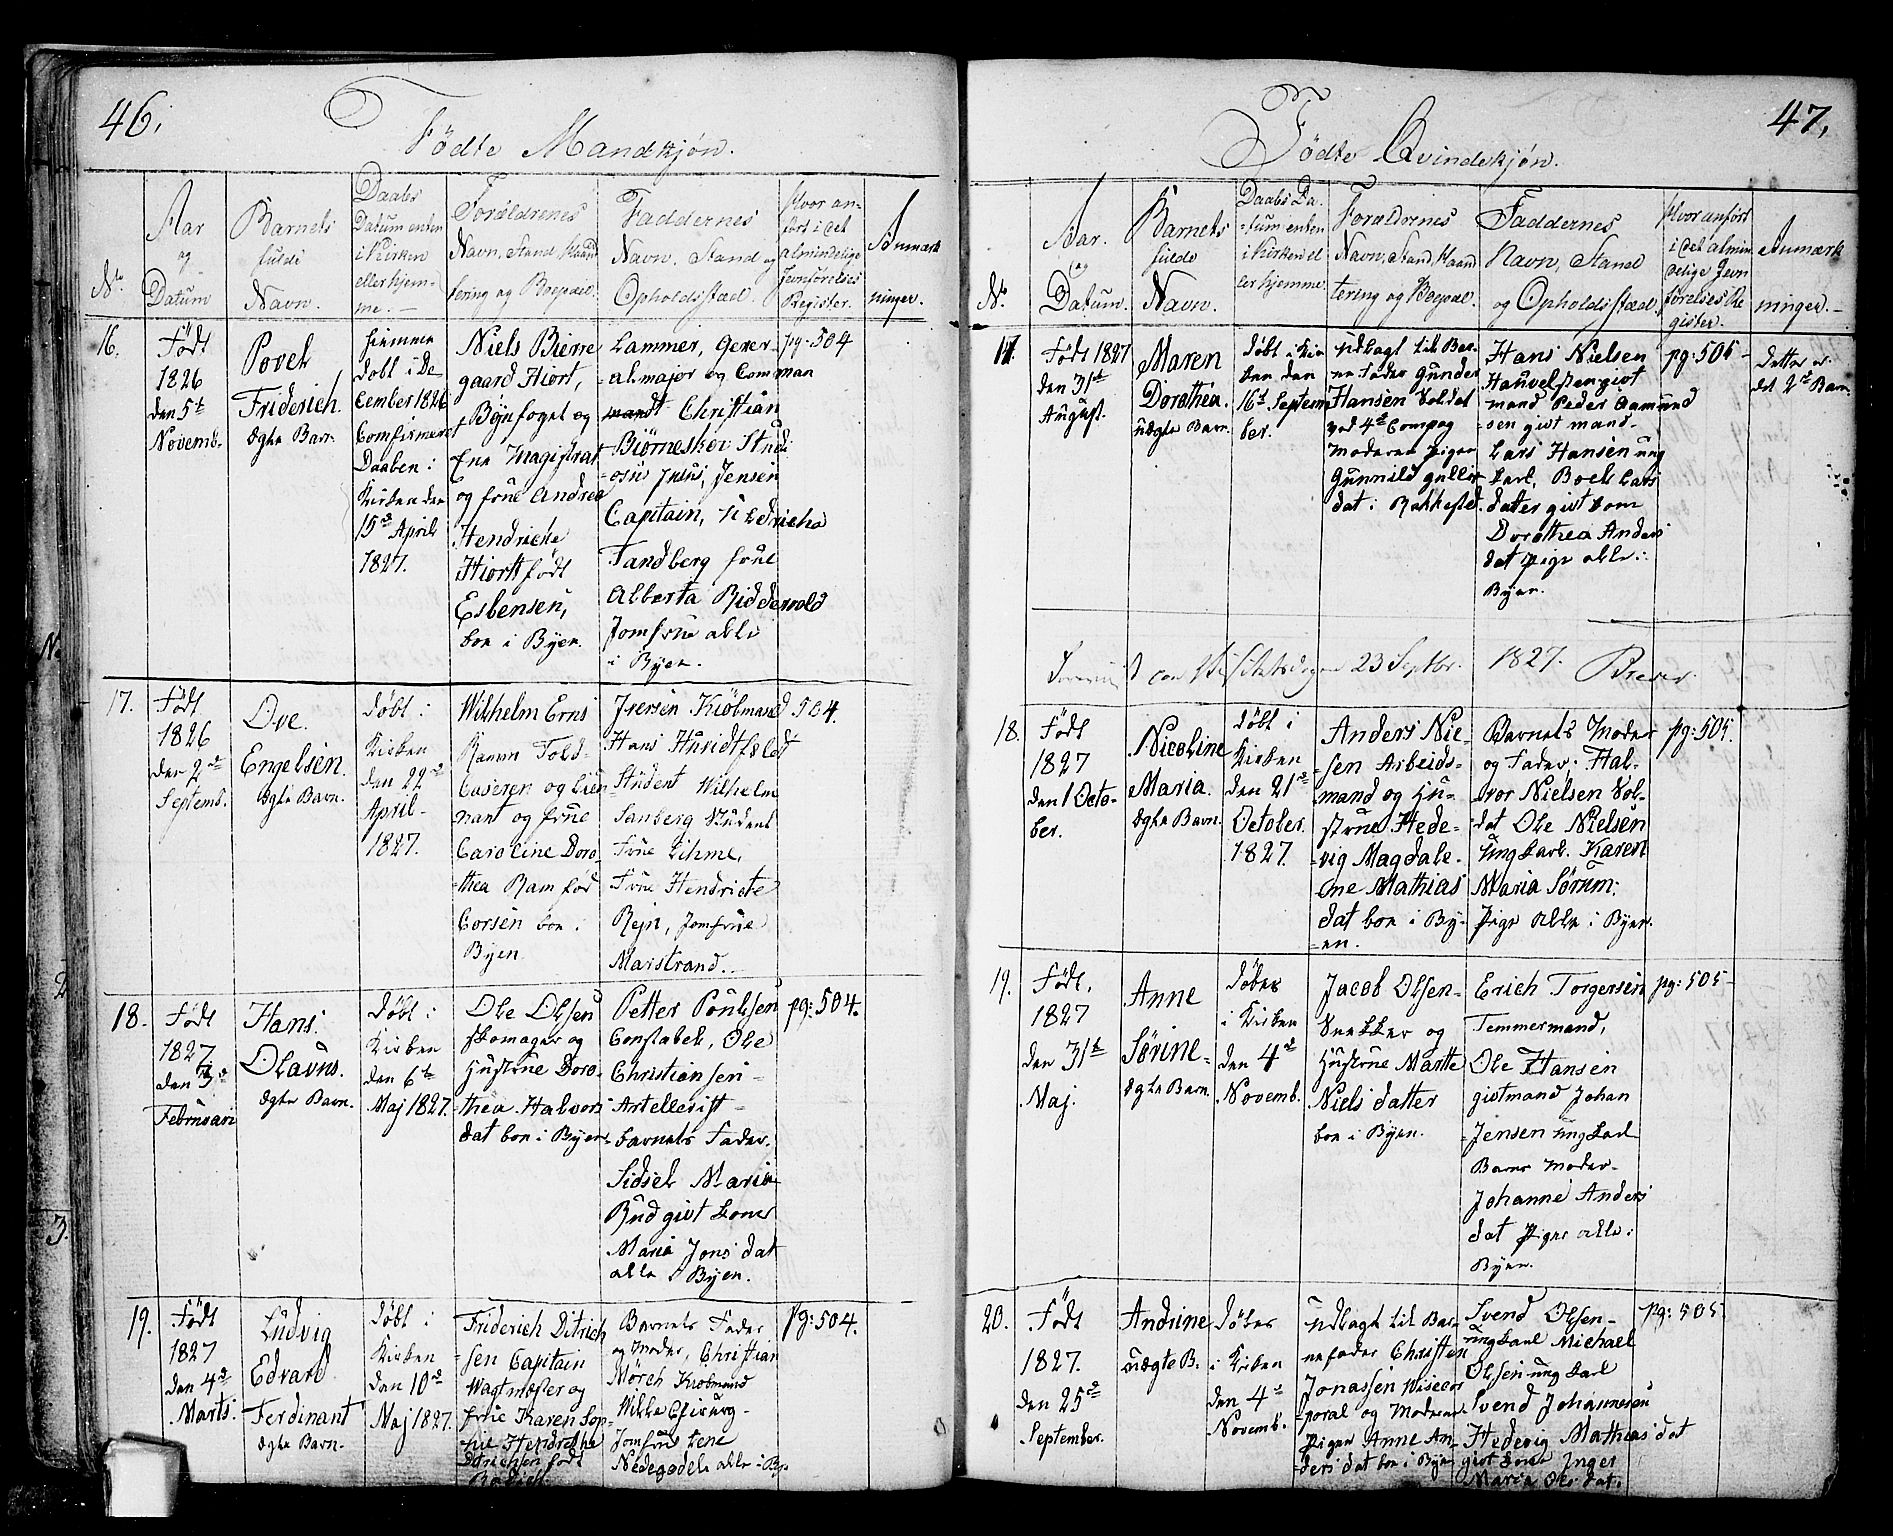 46.
Födte Mandkjøn.
No.
Aar
og
Datum
Barnets
fulde
Navn.
Daabs
Datum enten
i Kirken
eller hjem-
me.
Forældrenes
Navn, Stand, Haand
tering og Bopæl.
Faddernes
Navn, Stand og
Opholdssted.
Hvor an-
ført i det
almindelige
Jevnførelses
Register.
Anmærk
ninger.
16.
Født
1826
den 5te
Novemb.
Povel
Friderich.
Ægte Barn
hjemme
døbt i De
cember 1826
Comfirmeret
Daaben i
Kirken den
15de April
1827.
Niels Bierre
gaard Hiort,
Byefoget og
Ene Magistrat
og frue Andrea
Hendricke
Hiort født
Esbensen,
boe i Byen.
Lammer, Gener-
almajor og Comman
mandt Christian
Biørneskov Stud:
osus Jusus, Jensen
Capitain,
Tandberg frue
Alberta Riddervold
Jomfrue alle
i Byen.
pg. 504
17.
Født
1826
den 2de
Septemb.
Ove
Engelsen.
Ægte Barn.
Døbt i
Kirken
den 22de
April
1827.
Wilhelm Erns
Ramm Told-
Caseren og Lieu
nant og frue
Caroline Doro-
thea Ram fød
Corsen boe i
Byen
Iversen Kiöbmand
Hans Husidtfeldt
Student Wilhelm
Sanberg Student
Frue Lihme,
Frue Hendricte
Rejn, Jomfrue
Maristrand.
504.
18.
Født
1827.
den 3de
Februari
Hans
Olavus.
Ægte Barn.
Døbt i
Kirken
den 6te
Maj 1827.
Ole Olsen
skomager og
Hustrue Doro-
thea Halvors
dat boe i Byen
Petter Poulsen
Constabel, Ole
Christiansen
Artellerist
barnets Fader.
Sidsel Maria
Rud givt kone
Maria Jons dat
alle i Byen.
pg: 504.
19.
Født
1827
den 4de
Marts.
Ludvig
Edvard
Ferdinant
Ægte Barn.
Døbt i
Kirken
den 10de
Maj 1827.
Friderich Ditrich
sen Capitain
Wagtmester og
frue Karen Sop-
hie Hendrethe
Ditrichsen født
Barnets Fader
og Moder, Christian
Mörch Kiobmand
Wilke Chirurg
Jomfrue Lene
Nedegodels alle i By
pg: 504.
47.
Födte Qvindekjøn.
No.
Aar.
og
Datum.
Barnets
fulde
Navn.
Daabs Da-
tum enten
i Kirken el
ler hjemme.
Forældrenes
Navn, Stand, Haand
tering og Bopæl.
Faddernes
Navn, Stand
og Opholdssted.
Hvor anført
i det almin
delige Jevn
førelses Re
gister.
Anmærk
ninger.
17.
Født 1827
den 31te
August.
Maren
Dorothea.
uægte Barn.
Døbt i Kir
ken den
16de Septem
ber.
Udlagt til Bar-
ne fader Gunder
Hansen Soldat
ved 4de Compag
Moderen Pigen
Gunnild gulbr
dat i Rakkestd.
Hans Nielsen
Hauvelsten givt
mand Peder Aamund
sen givt mand.
Lars Hansen ung
karl, Boel Lars
datter givt kone
Dorothea Anders
dat Pige alle i
Byen.
pg: 505
Dette er
det 2de Barn
23 Septbr. 1827.
18.
Født
1827
den 1 Octo-
ber.
Nicoline
Maria.
Ægte Barn.
Døbt i
Kirken
den 21de
October
1827.
Anders Nie-
sen Arbeids-
mand og Hu-
strue Hede-
vig Magdale-
ne Mathias
dat boe i By-
en.
Barnets Moder
og Fader, Hal-
vor Nielsen Sol-
dat Ole Nielsen
Ungkarl. Karen
Maria Sørum
Pige alle i Byen.
pg: 505.
19.
Født,
1827
den 31te
Maj.
Anne
Sørine
Ægte Barn.
Døbet
i Kirken
den 4de
Novemb.
Jacob Olsen
Snekker og
Hustrue Marthe
Niels datter
boe i Byen.
Erich Torgersen
Temmermand,
Ole Hansen
givtmand Johan
Jensen ungkarl
Barns Moder
Johanne Anders
dat Pige alle i
Byen.
pg: 505
20.
Født
1827.
den 25de
September.
Andrine
uægte B.
Døbet
i Kirken
den 4de
Novemb.
Udlagt til Bar-
nefader Christen
Jonassen Wisecor
poral og Moderen
Pigen Anne An-
ders dat boe i Byen
Svend Olsen
ungkarl Michael
Olsen ungkarl
Svend Johannesen
Hedevig Mathias dat
givt kone Inger
Maria Ols dat.
pg: 505